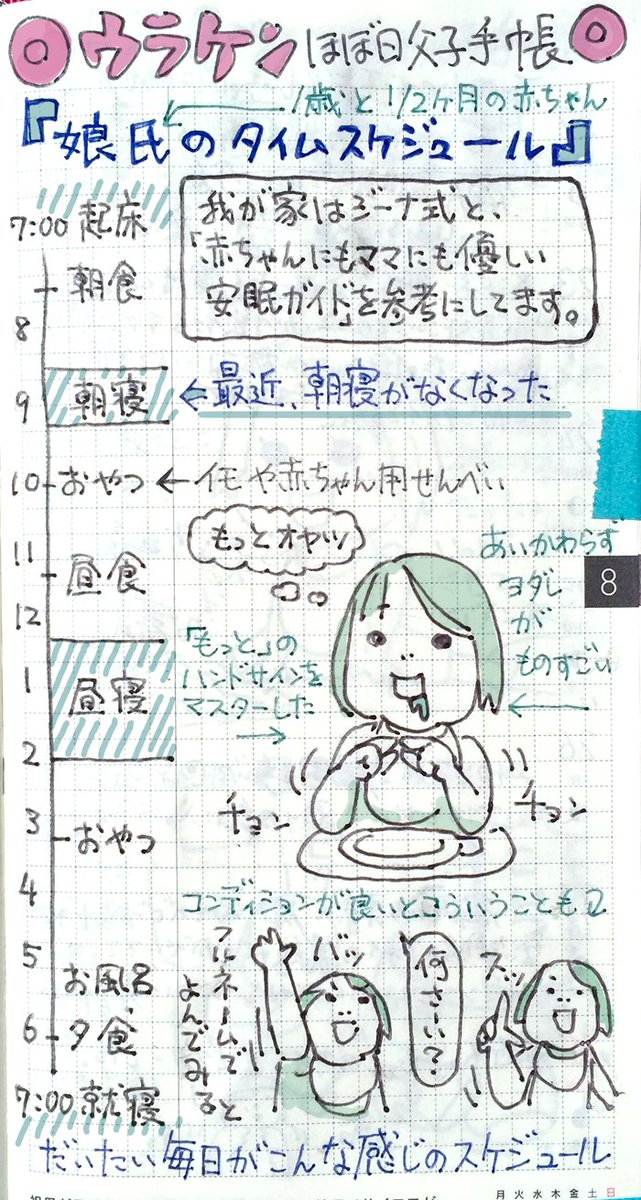 ウラケン ほぼ日父子手帳
1歳と1/2ヶ月の赤ちゃん
『娘氏のタイムスケジュール』
7:00 起床
我が家はジーナ式と、
「赤ちゃんにもママにも優しい
安眠ガイド」を参考にしてます。
朝食
8
9 朝寝 ← 最近、朝寝がなくなった
10 おやつ ← イモや赤ちゃん用せんべい
もっとオヤツ
11
昼食
12
あいかわらず
ヨダレ
が
ものすごい
8
「もっと」の
ハンドサインを
マスターした
1 昼寝
2
チョン
チョン
3 おやつ
4
コンディションが良いとこういうことも
5
お風呂
6 夕食
フルネームで
よんでみると
バッ
何さーい?
スッ
7:00 就寝
だいたい毎日がこんな感じのスケジュール
月 火 水 木 金 土 日